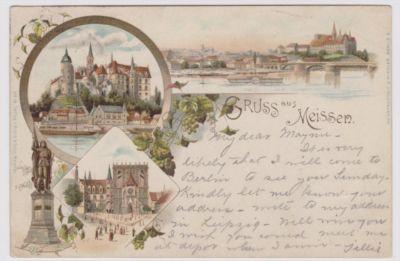 Gruss aus
Meissen.
My dear Mayme -
It is very
likely that I will come to
Berlin to see you Sunday.
Kindly let me know your
address - write to my address
in Leipzig - Will wire you
I wish you would meet me
at depot when I arrive -